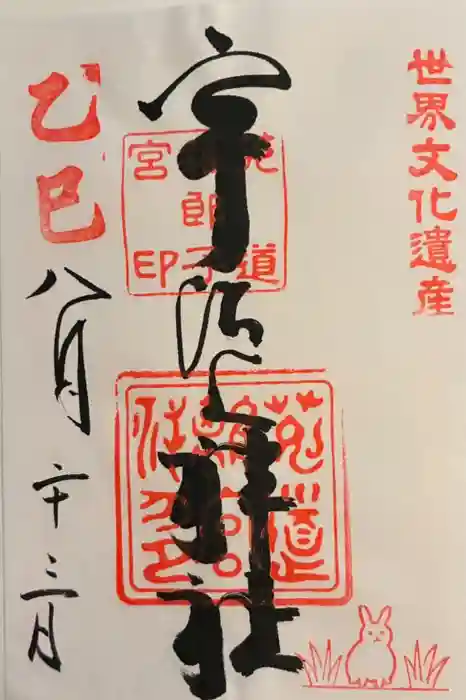 世界文化遺産
宇治上神社
菟道
稚郎子
宮印
乙巳
八月二十三日